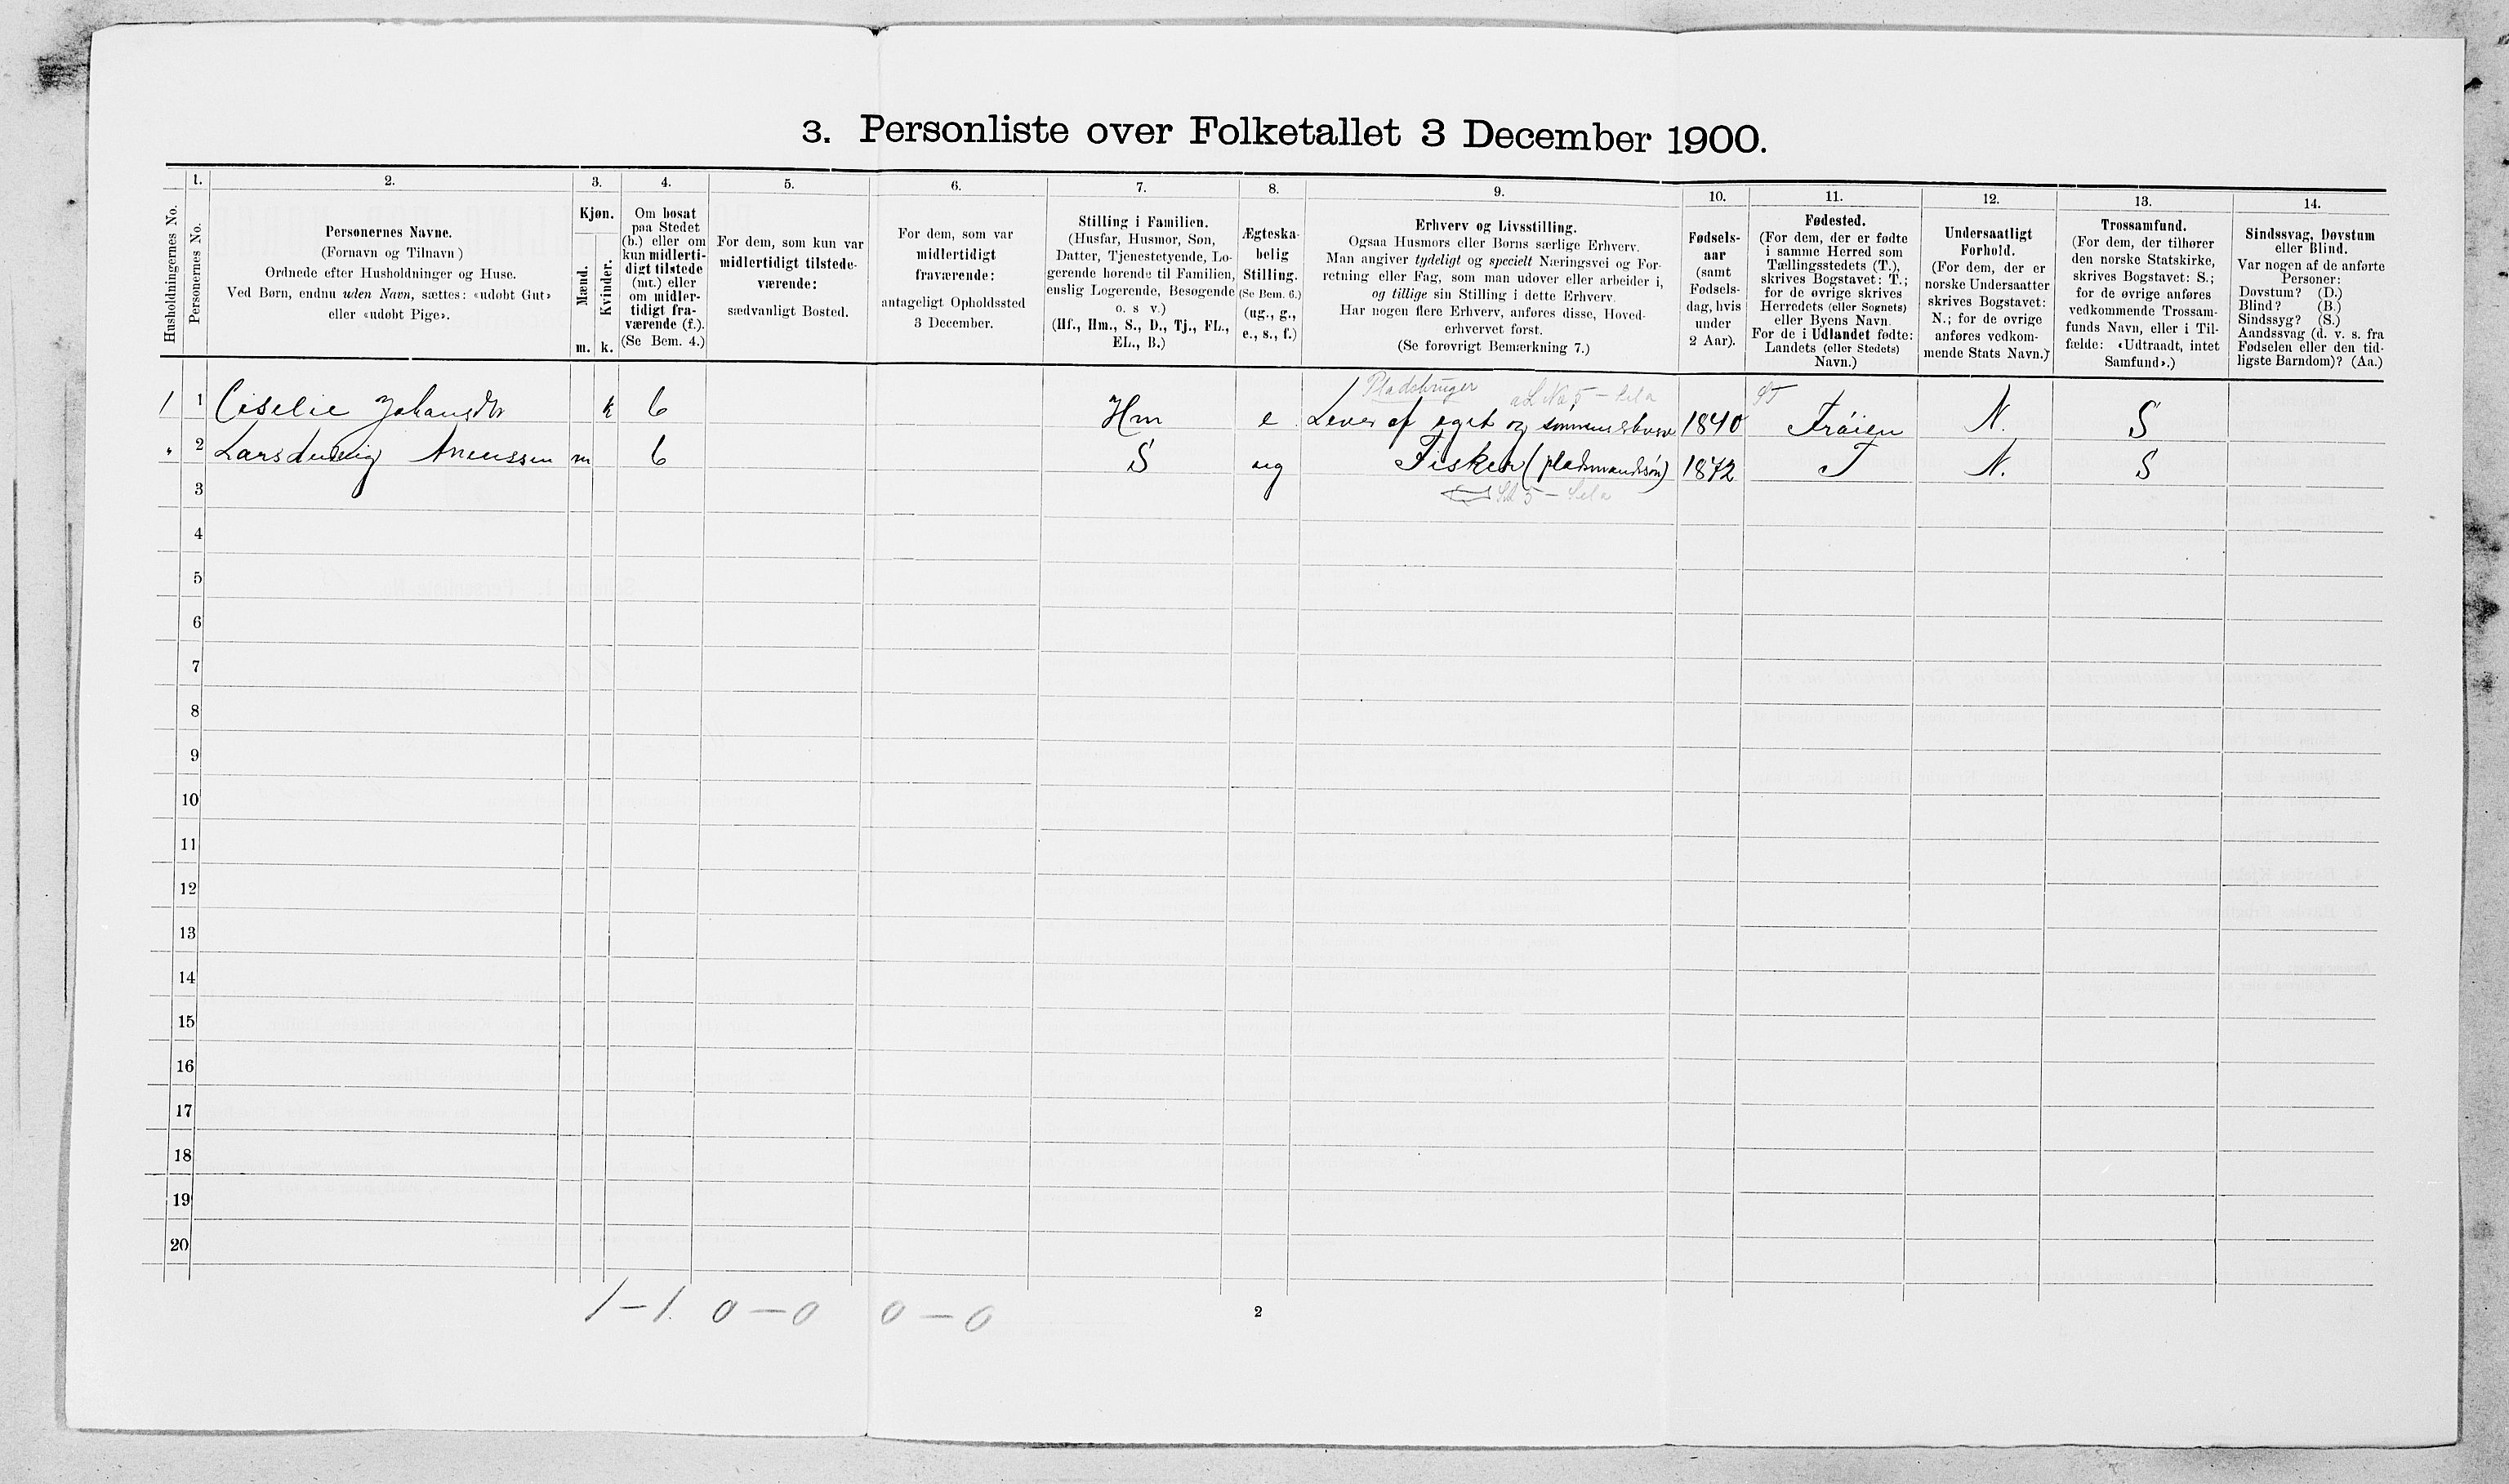 3. Personliste over Folketallet 3 December 1900.
Husholdningernes No.
1.
Personernes No.
2.
Personernes Navne.
(Fornavn og Tilnavn)
Ordnede efter Husholdninger og Huse.
Ved Børn, endnu uden Navn, sættes: «udøbt Gut»
eller «udøbt Pige».
3.
Kjøn.
Mænd.
Kvinder.
m. k.
4.
Om bosat
paa Stedet
(b.) eller om
kun midlerti-
digt tilstede
(mt.) eller
om midler-
tidigt fra-
værende (f.).
(Se Bem. 4.)
5.
For dem, som kun var
midlertidigt tilstede-
værende:
sædvanligt Bosted.
6.
For dem, som var
midlertidigt
fraværende:
antageligt Opholdssted
3 December.
7.
Stilling i Familien.
(Husfar, Husmor, Søn,
Datter, Tjenestetyende, Lo-
gerende hørende til Familien,
enslig Logerende, Besøgende
o. s v.)
(Hf., Hm., S., D., Tj., FL.,
EL., B.)
8.
Ægteska-
belig
Stilling.
(Se Bem. 6.)
(ug., g.,
e., s., f.)
9.
Erhverv og Livsstilling.
Ogsaa Husmors eller Børns særlige Erhverv.
Man angiver tydeligt og specielt Næringsvei og For-
retning eller Fag, som man udøver eller arbeider i,
og tillige sin Stilling i dette Erhverv.
Har nogen flere Erhverv, anføres disse, Hoved-
erhvervet først.
(Se forøvrigt Bemærkning 7.)
10.
Fødsels-
aar
(samt
Fødsels-
dag, hvis
under
2 Aar).
11.
Fødested.
(For dem, der er fødte
i samme Herred som
Tællingsstedets (T.),
skrives Bogstavet: T.;
for de øvrige skrives
Herredets (eller Sognets)
eller Byens Navn.
For de i Udlandet fødte:
Landets (eller Stedets)
Navn.)
12.
Undersaatligt
Forhold.
(For dem, der er
norske Undersaatter
skrives Bogstavet:
N.; for de øvrige
anføres vedkom-
mende Stats Navn.)
13.
Trossamfund.
(For dem, der tilhører
den norske Statskirke,
skrives Bogstavet: S.;
for de øvrige anføres
vedkommende Trossam-
funds Navn, eller i Til-
fælde: «Udtraadt, intet
Samfund».)
14.
Sindssvag, Døvstum
eller Blind.
Var nogen af de anførte
Personer:
Døvstum? (D.)
Blind? (B.)
Sindssyg? (S.)
Aandssvag (d. v. s. fra
Fødselen eller den tid-
ligste Barndom)? (Aa.)
Pladsbruger
1 1 Ciselie Johansdtr k b Hm e Lever af eget og sønnens 1840 Frøien N. S
" 2 Lars Ludvig Aneussen m b S ug Fisker (pladsmandssøn) 1872 T N. S
3
4
5
6
7
8
9
10
11
12
13
14
15
16
17
18
19
20
1 – 1 0 – 0 0 – 0
2